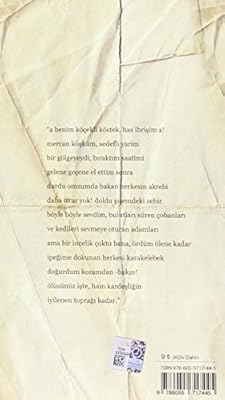 "a benim köçekli köstek, has ibrişim a!
mercan köşküm, sedefli yarim
bir gölgeydi, bıraktım saatimi
gelene geçene el ettim sonra
durdu omzumda bakan herkesin akrebi
daha ısrar yok! doldu şişemdeki zehir
böyle böyle sevdim, bulutları süren çobanları
ve kedileri sevmeye oturan adamları
ama bir incelik çoktu bana, ördüm ölene kadar
ipeğime dokunan herkesi karakelebek
doğurdum kozamdan -bakın!
ölüsünüz işte, hain kardeşliğin
iyilenen toprağı kadar."
9 ₺ (KDV Dahil)
ISBN 978-605-5717-44-5
9 786055 717445